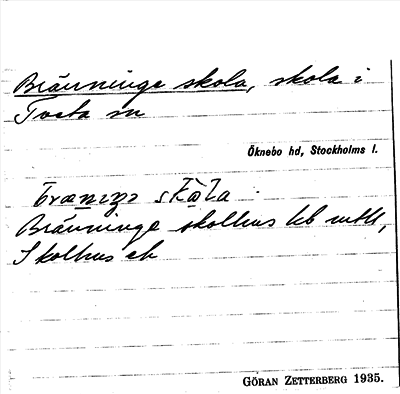 Bränninge skola, skola i
Tveta sn
Öknebo hd, Stockholms l.
bræniŋə skola
Bränninge skolhus kb mtbl,
Skolhus ek
GÖRAN ZETTERBERG 1935.